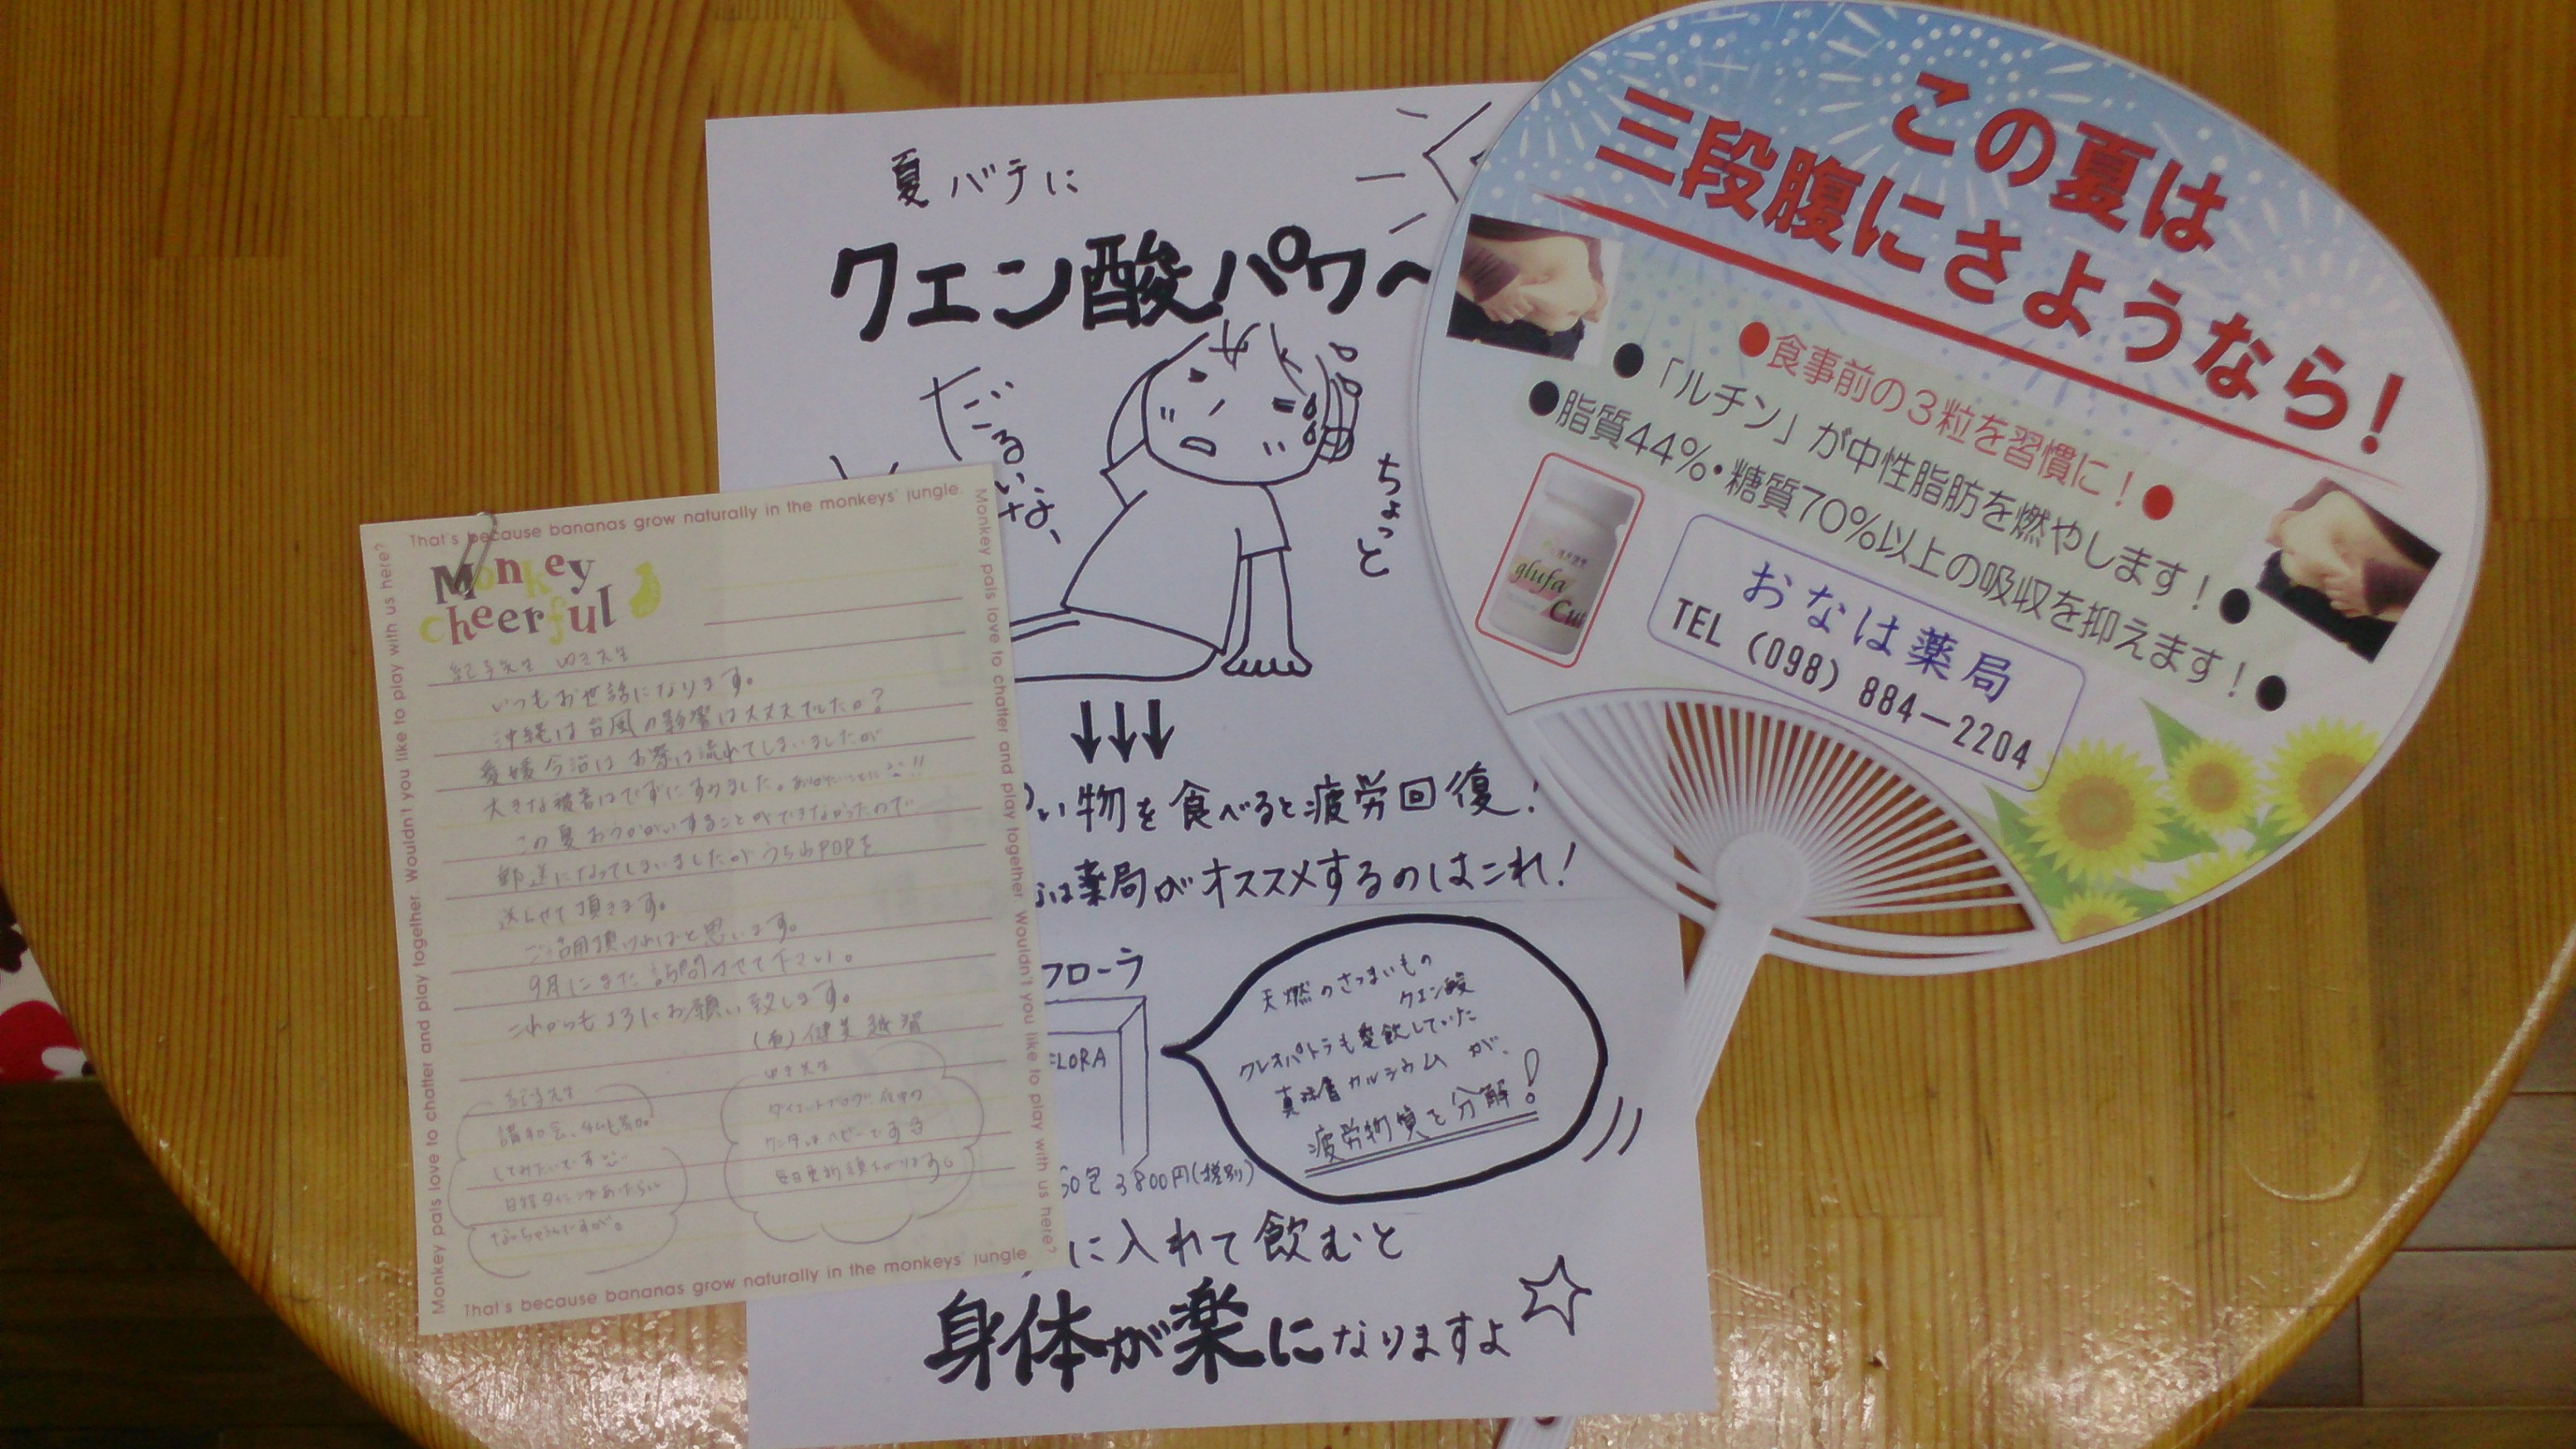 この夏は
三段腹にさようなら！
●食事前の３粒を習慣に！●
●「ルチン」が中性脂肪を燃やします！●
●脂質44％・糖質70％以上の吸収を抑えます！●
glufa
Cut
おなは薬局
TEL（098）884－2204
夏バテに
クエン酸パワ〜
だるいな、
ちょっと
い物を食べると疲労回復！
は薬局がオススメするのはこれ！
フローラ
FLORA
天燃のさつまいもの
クエン酸
クレオパトラも愛飲していた
真珠層カルシウムが、
疲労物質を分解！
60包 3800円(税別)
に入れて飲むと
身体が楽になりますよ☆
That's because bananas grow naturally in the monkeys' jungle.
Monkey
cheerful
紀子先生 ゆき先生
いつもお世話になります。
沖縄は台風の影響は大丈夫でしたか？
愛媛今治はお祭は流れてしまいましたが
大きな被害はでずにすみました。ありがたいことに!!
この夏おうかがいすることができなかったので
郵送になってしまいましたがうちわPOPを
送らせて頂きます。
ご活用頂ければと思います。
9月にまた訪問させて下さい。
これからもよろしくお願い致します。
(有)健美
紀子先生
してみたいです
ゆき先生
毎日更新頭下がります。
That's because bananas grow naturally in the monkeys' jungle.
Monkey pals love to chatter and play together. Wouldn't you like to play with us here?
Monkey pals love to chatter and play together. Wouldn't you like to play with us here?